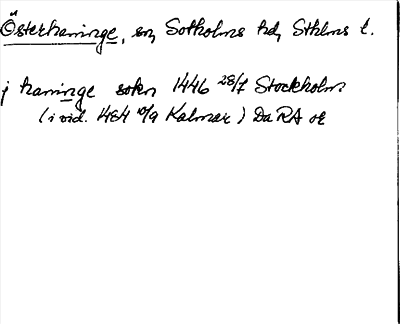 Österhaninge, sn, Sotholms hd, Sthlms l.
j haninge sokn 1446 28/7 Stockholm
(i vid. 1484 10/9 Kalmar) Da RA or